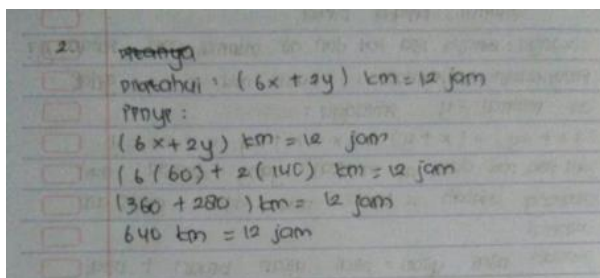 2. Ditanya
Diketahui : (6x + 2y) km = 12 jam
Penye :
(6x + 2y) km = 12 jam
(6(60) + 2(140) km = 12 jam
(360 + 280) km = 12 jam
640 km = 12 jam